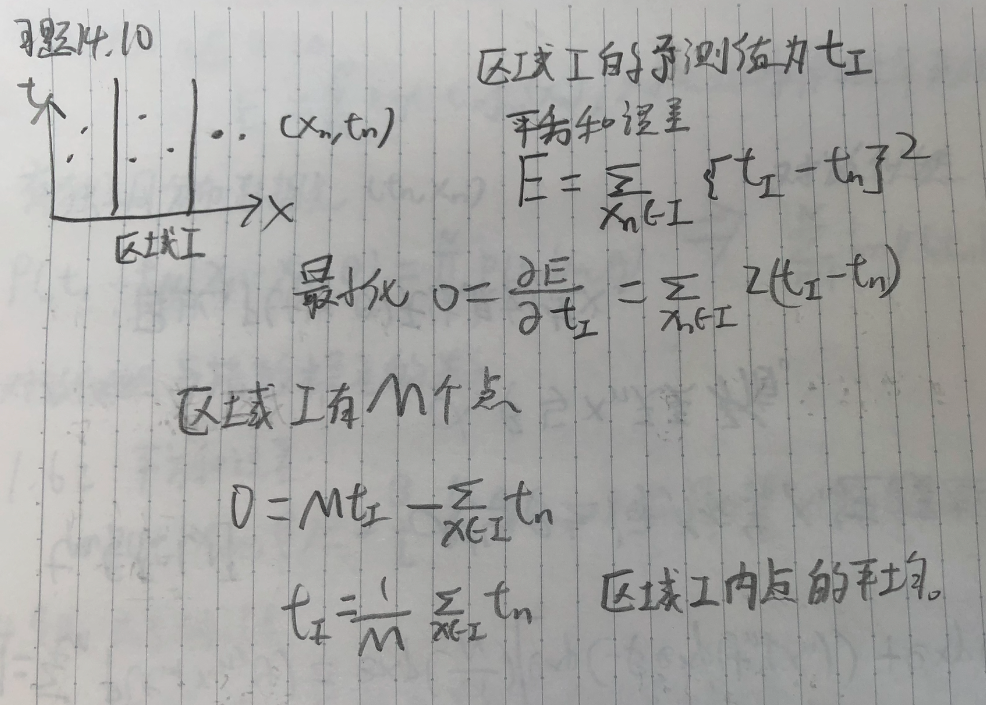 习题14.10
t
(xn,tn)
x
区域I
区域I的预测值为tI
平方和误差
E = Σ xn∈I {tI - tn}²
最小化 0 = ∂E/∂tI = Σ xn∈I 2(tI - tn)
区域I有M个点
0 = MtI - Σ x∈I tn
tI = 1/M Σ x∈I tn
区域I内点的平均。